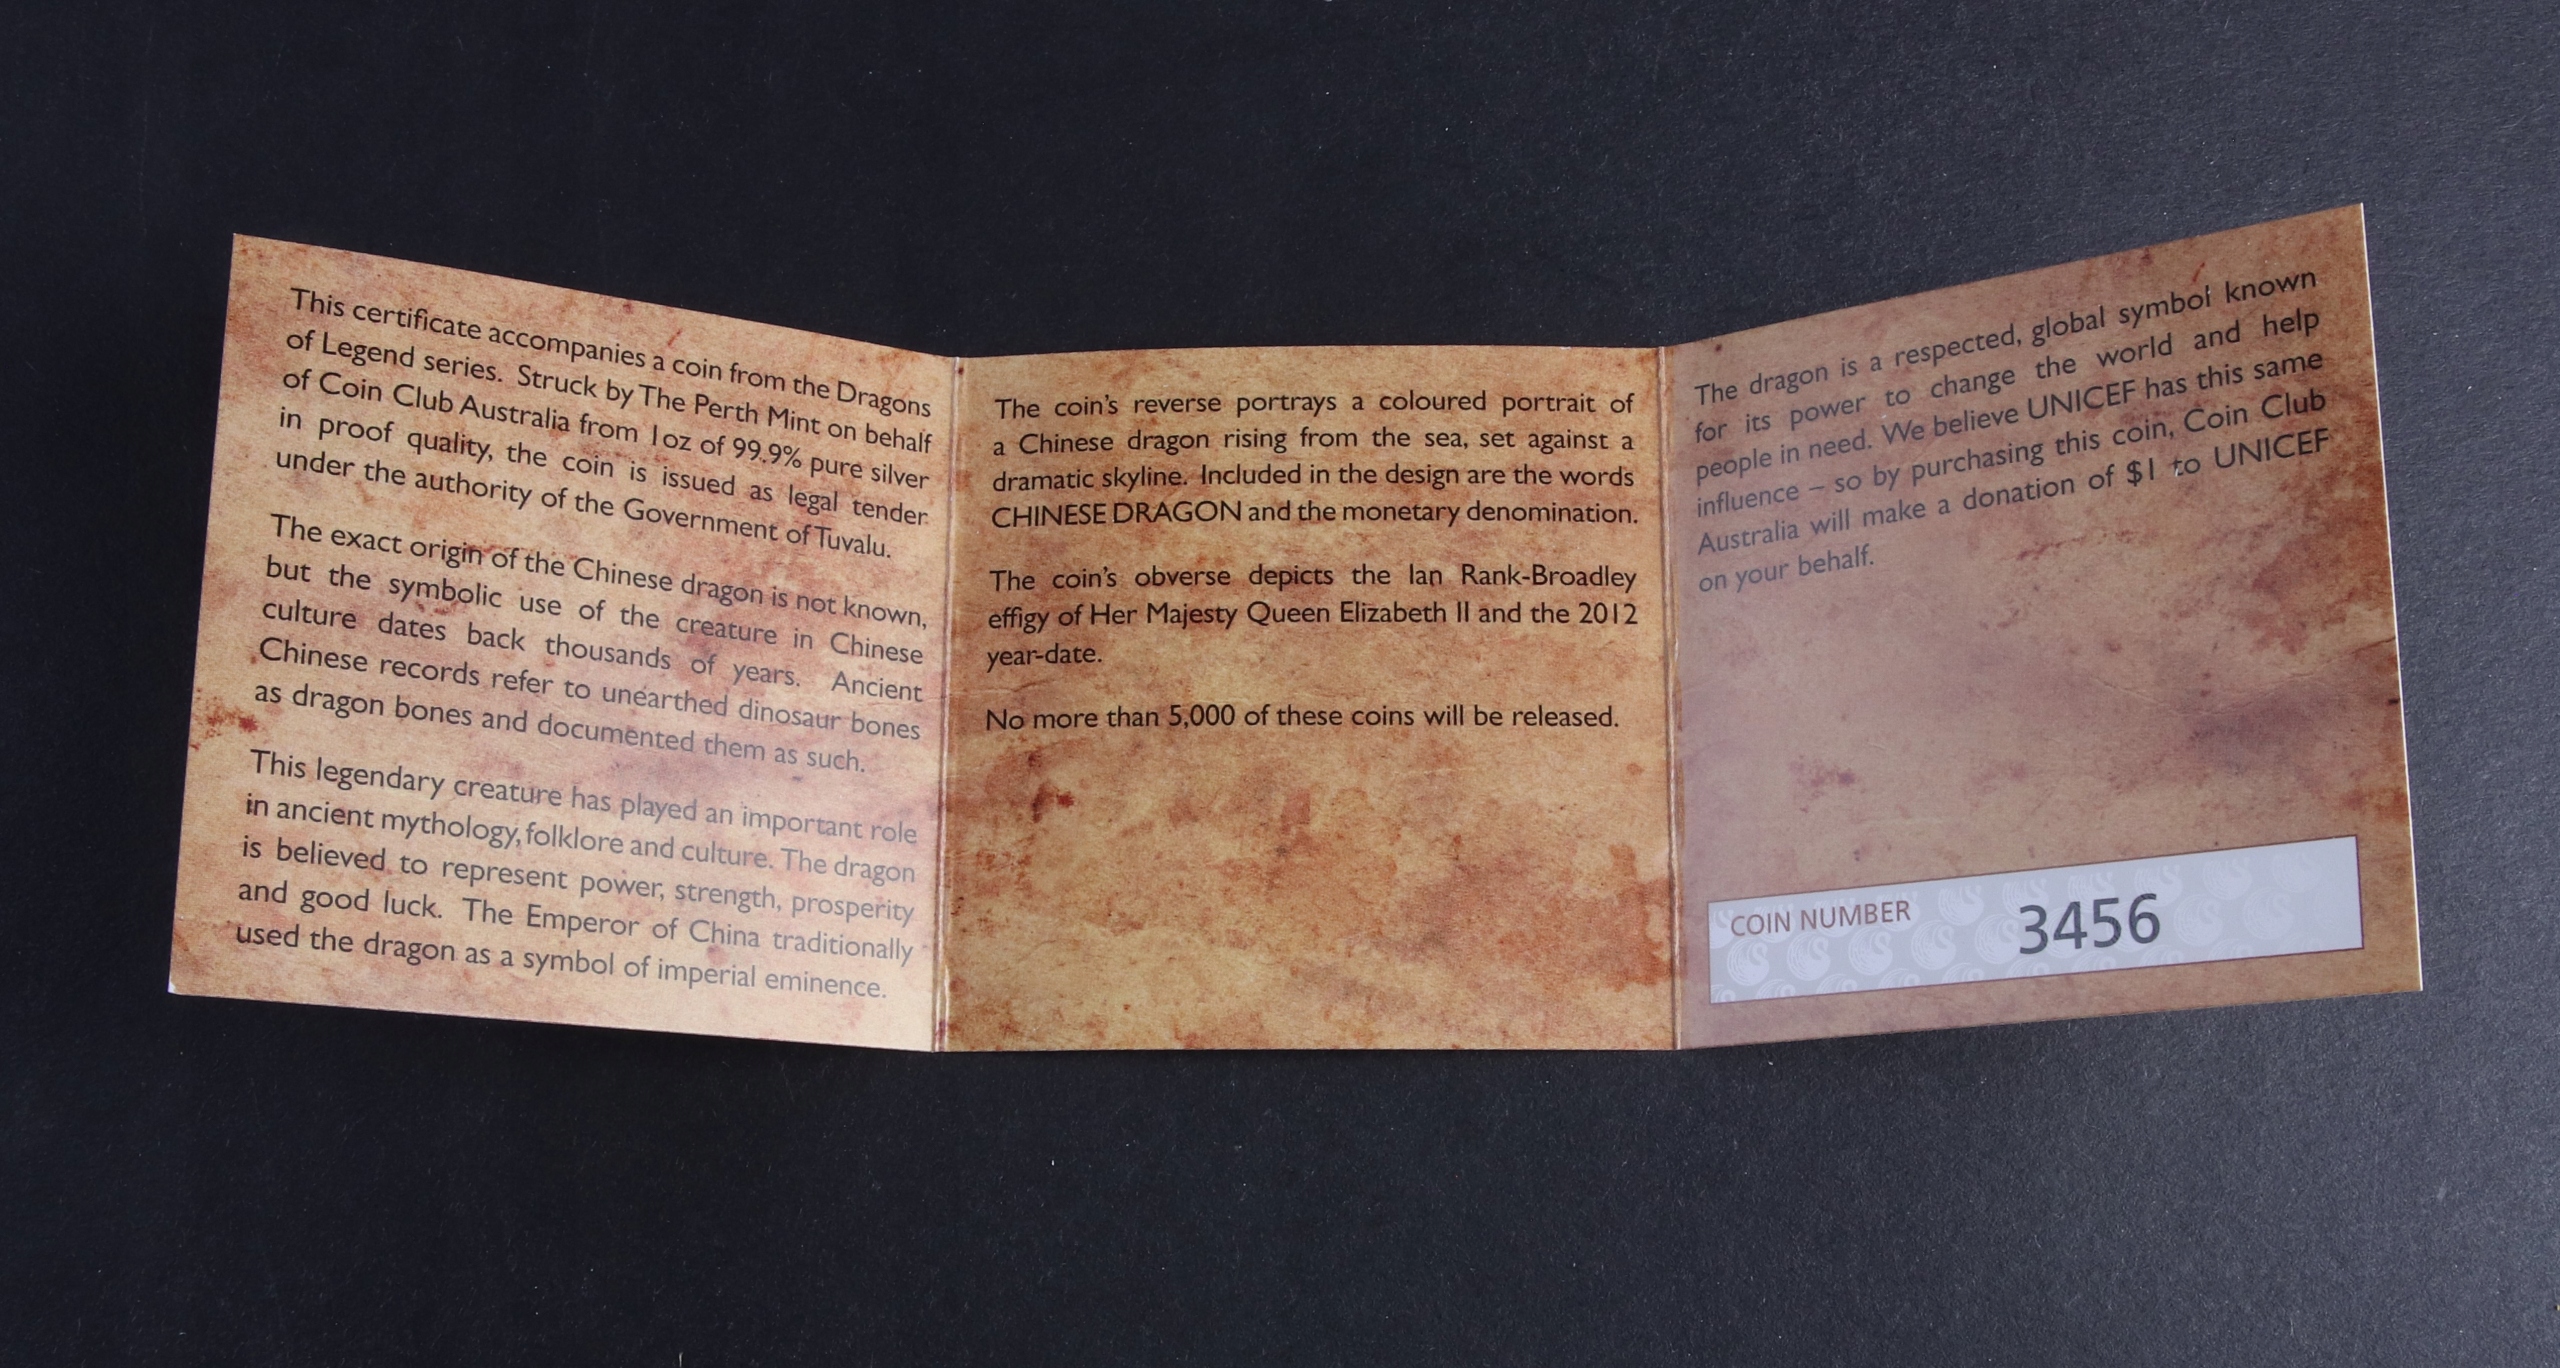 This certificate accompanies a coin from the Dragons
of Legend series. Struck by The Perth Mint on behalf
of Coin Club Australia from 1oz of 99.9% pure silver
in proof quality, the coin is issued as legal tender
under the authority of the Government of Tuvalu.
The exact origin of the Chinese dragon is not known,
but the symbolic use of the creature in Chinese
culture dates back thousands of years. Ancient
Chinese records refer to unearthed dinosaur bones
as dragon bones and documented them as such.
This legendary creature has played an important role
in ancient mythology, folklore and culture. The dragon
is believed to represent power, strength, prosperity
and good luck. The Emperor of China traditionally
used the dragon as a symbol of imperial eminence.
The coin's reverse portrays a coloured portrait of
a Chinese dragon rising from the sea, set against a
dramatic skyline. Included in the design are the words
CHINESE DRAGON and the monetary denomination.
The coin's obverse depicts the Ian Rank-Broadley
effigy of Her Majesty Queen Elizabeth II and the 2012
year-date.
No more than 5,000 of these coins will be released.
The dragon is a respected, global symbol known
for its power to change the world and help
people in need. We believe UNICEF has this same
influence – so by purchasing this coin, Coin Club
Australia will make a donation of $1 to UNICEF
on your behalf.
COIN NUMBER 3456